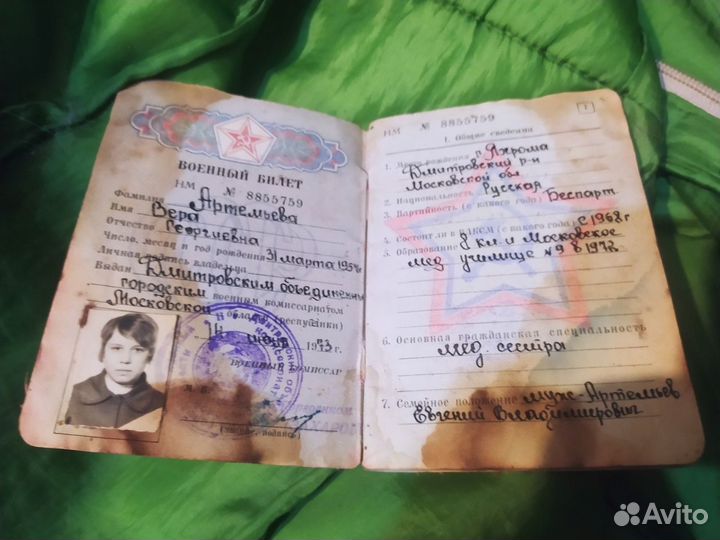 ВОЕННЫЙ БИЛЕТ
НМ № 8855759
Фамилия Артемьева
Имя Вера
Отчество Георгиевна
Число, месяц и год рождения 31 марта
Личная подпись владельца
Выдан Дмитровским объединенным
городским военным комиссариатом
Московской области (республики)
14 1973 г.
ВОЕННЫЙ КОМИССАР
НМ № 8855759
1
I. Общие сведения
1. Место рождения г. Яхрома
Дмитровский р-н
Московской обл.
2. Национальность Русская
3. Партийность (с какого года) Беспарт
4. Состоит ли в ВЛКСМ (с какого года) с 1968 г
5. Образование 8 кл. и Московское
мед училище №9 в 1972
6. Основная гражданская специальность
мед. сестра
7. Семейное положение муж-Артемьев
Евгений Владимирович
Avito